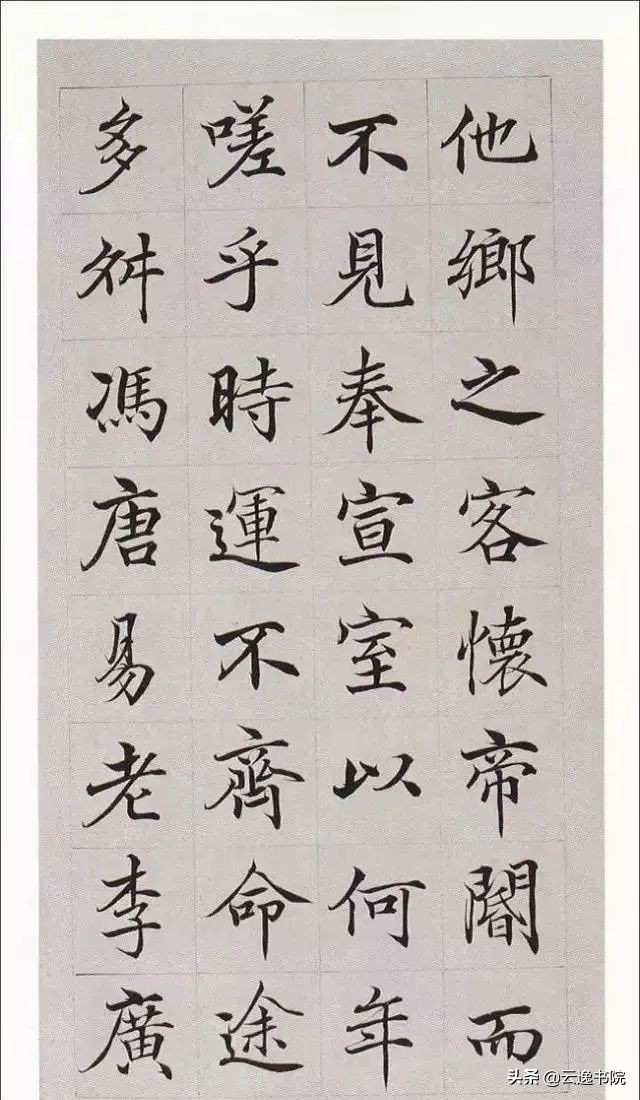 他鄉之客懷帝閽而
不見奉宣室以何年
嗟乎時運不齊命途
多舛馮唐易老李廣
头条 @云逸书院